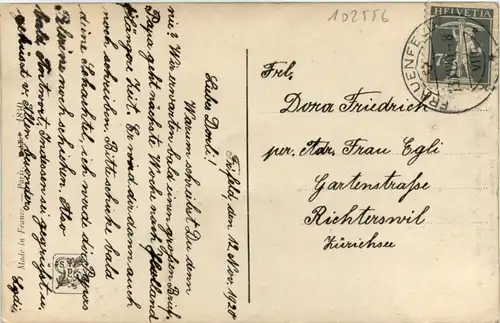 102556
HELVETIA
7½
FRAUENFELD
Frl.
Dora Friedrich
per. Adr. Frau Egli
Gartenstraße
Richterswil
Zürichsee
Frfeld, den 12. Nov. 1920
Liebes Dorli!
Warum schreibst Du denn
nie? Wir erwarten bald einen großen Brief.
Papa geht nächste Woche nach Holland
längere Zeit. Er wird dir dann auch
noch schreiben. Bitte schicke bald
deine Schachtel, ich werde die
noch schicken. Also
bald Antwort. Indessen sei gegrüßt u.
geküsst v. Allen besonders
Lydi
Made in France - Paris 1810